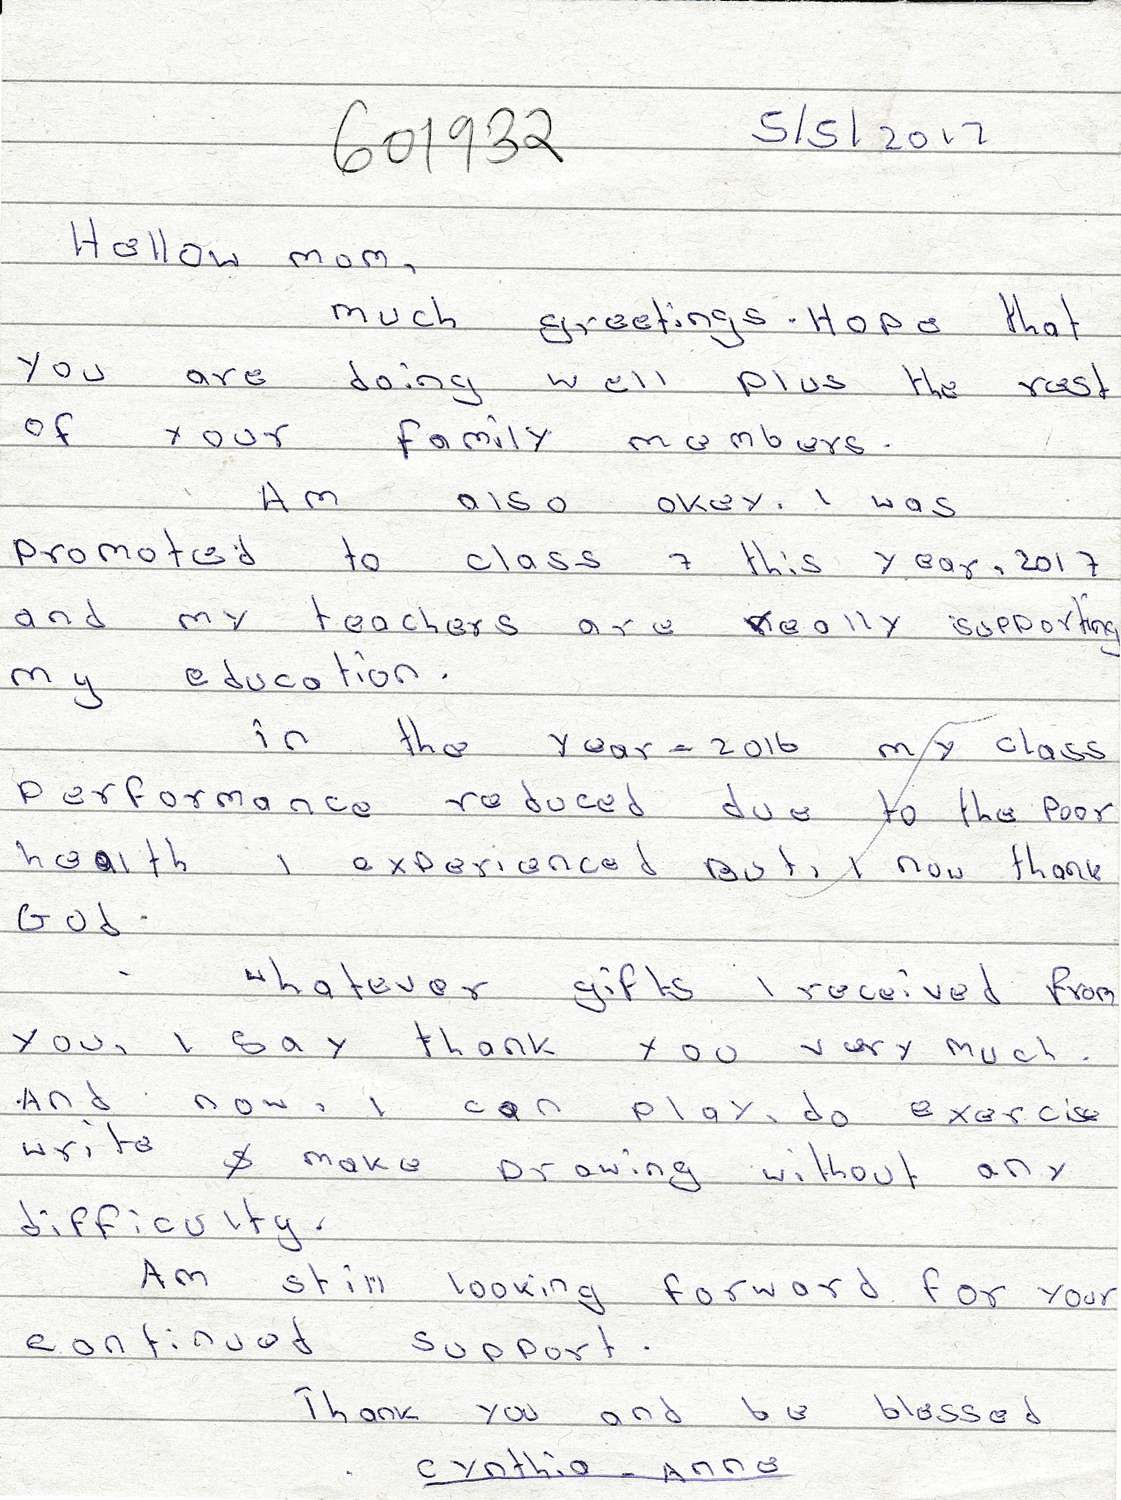 601932 5/5/2017
Hellow mom,
much greetings. Hope that
you are doing well plus the rest
of your family members.
Am also okey. I was
promoted to class 7 this year, 2017
and my teachers are really supporting
my education.
in the year = 2016 my class
performance reduced due to the poor
health I experienced But, I now thank
God.
whatever gifts I received from
you, I say thank you very much.
And now, I can play, do exercise
write & make Drawing without any
difficulty.
Am still looking forward for your
continued support.
Thank you and be blessed
Cynthia - Anne